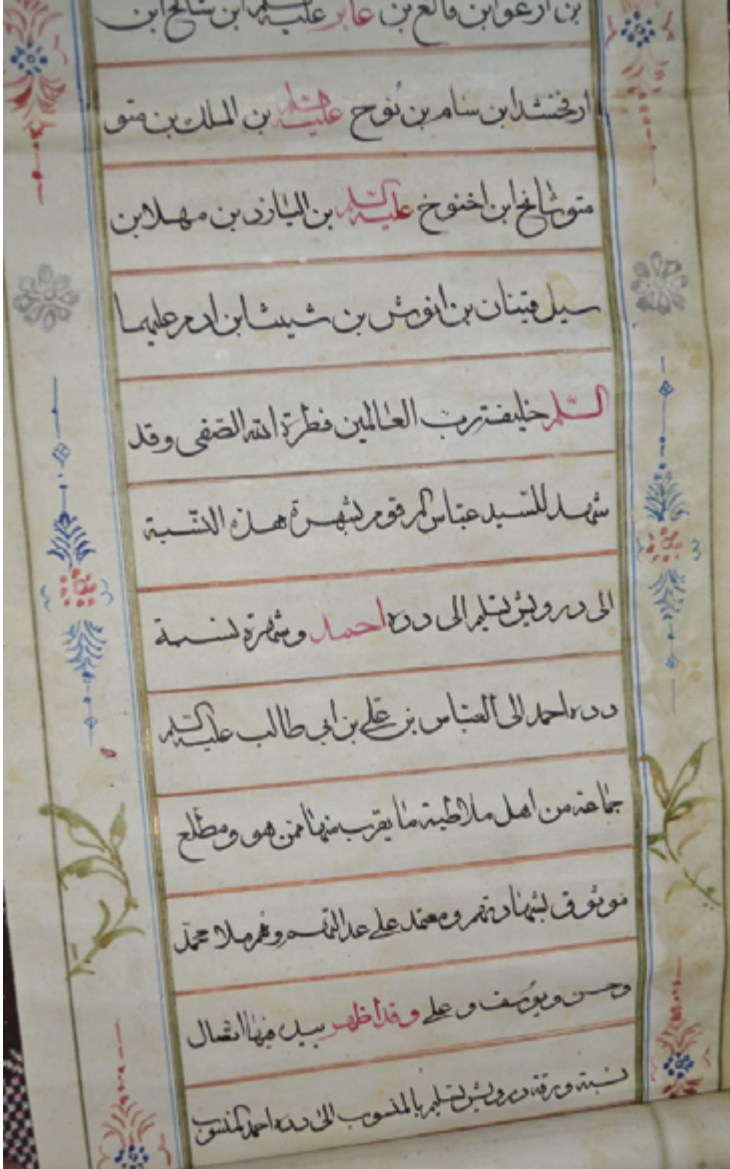 بن ارعوا بن فالغ بن عابر عليه السلم ابن شالخ ابن
ارفخشد ابن سام بن نوح عليه السلم بن الملك بن متو
متوشالخ ابن اخنوخ عليه السلم بن اليازد بن مهلا بن
سيل قينان بن انوش بن شيث ابن ادم عليهما
السلم خليفة رب العالمين فطرة الله الصفى وقد
شهد للسيد عباس المرقوم لشهرة هذه النسبة
الى درويش الى دده احمد وشهرة نسبة
دده احمد الى العباس بن علي بن ابي طالب عليه السلم
جماعة من اهل ملاطية ما يقرب منها ممن هو ومطلع
موثوق بشهادتهم ومعتمد على عدالتهم وهم ملا محمد
وحسن ويوسف و علي وقد اظهر بيده فيها اتصال
نسبة ورقة درويش المنسوب الى دده احمد المنسوب